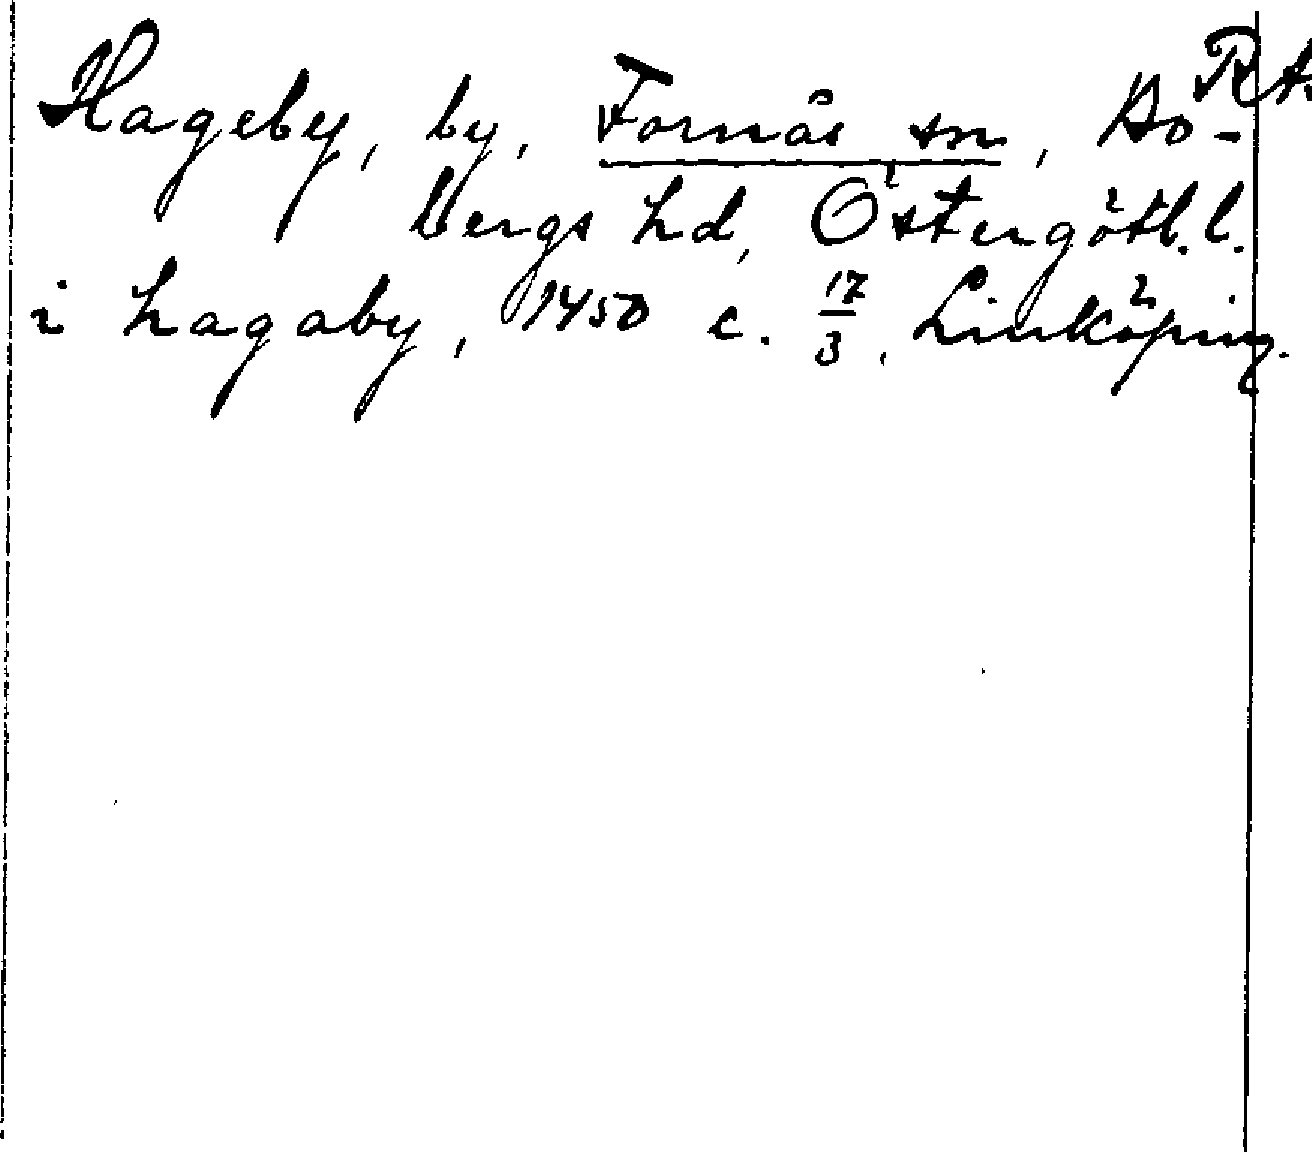 RA.
Hageby, by, Fornåsa sn, Bo-
bergs hd, Östergötl. l.
i hagaby, 1450 c. 17/3, Linköping.